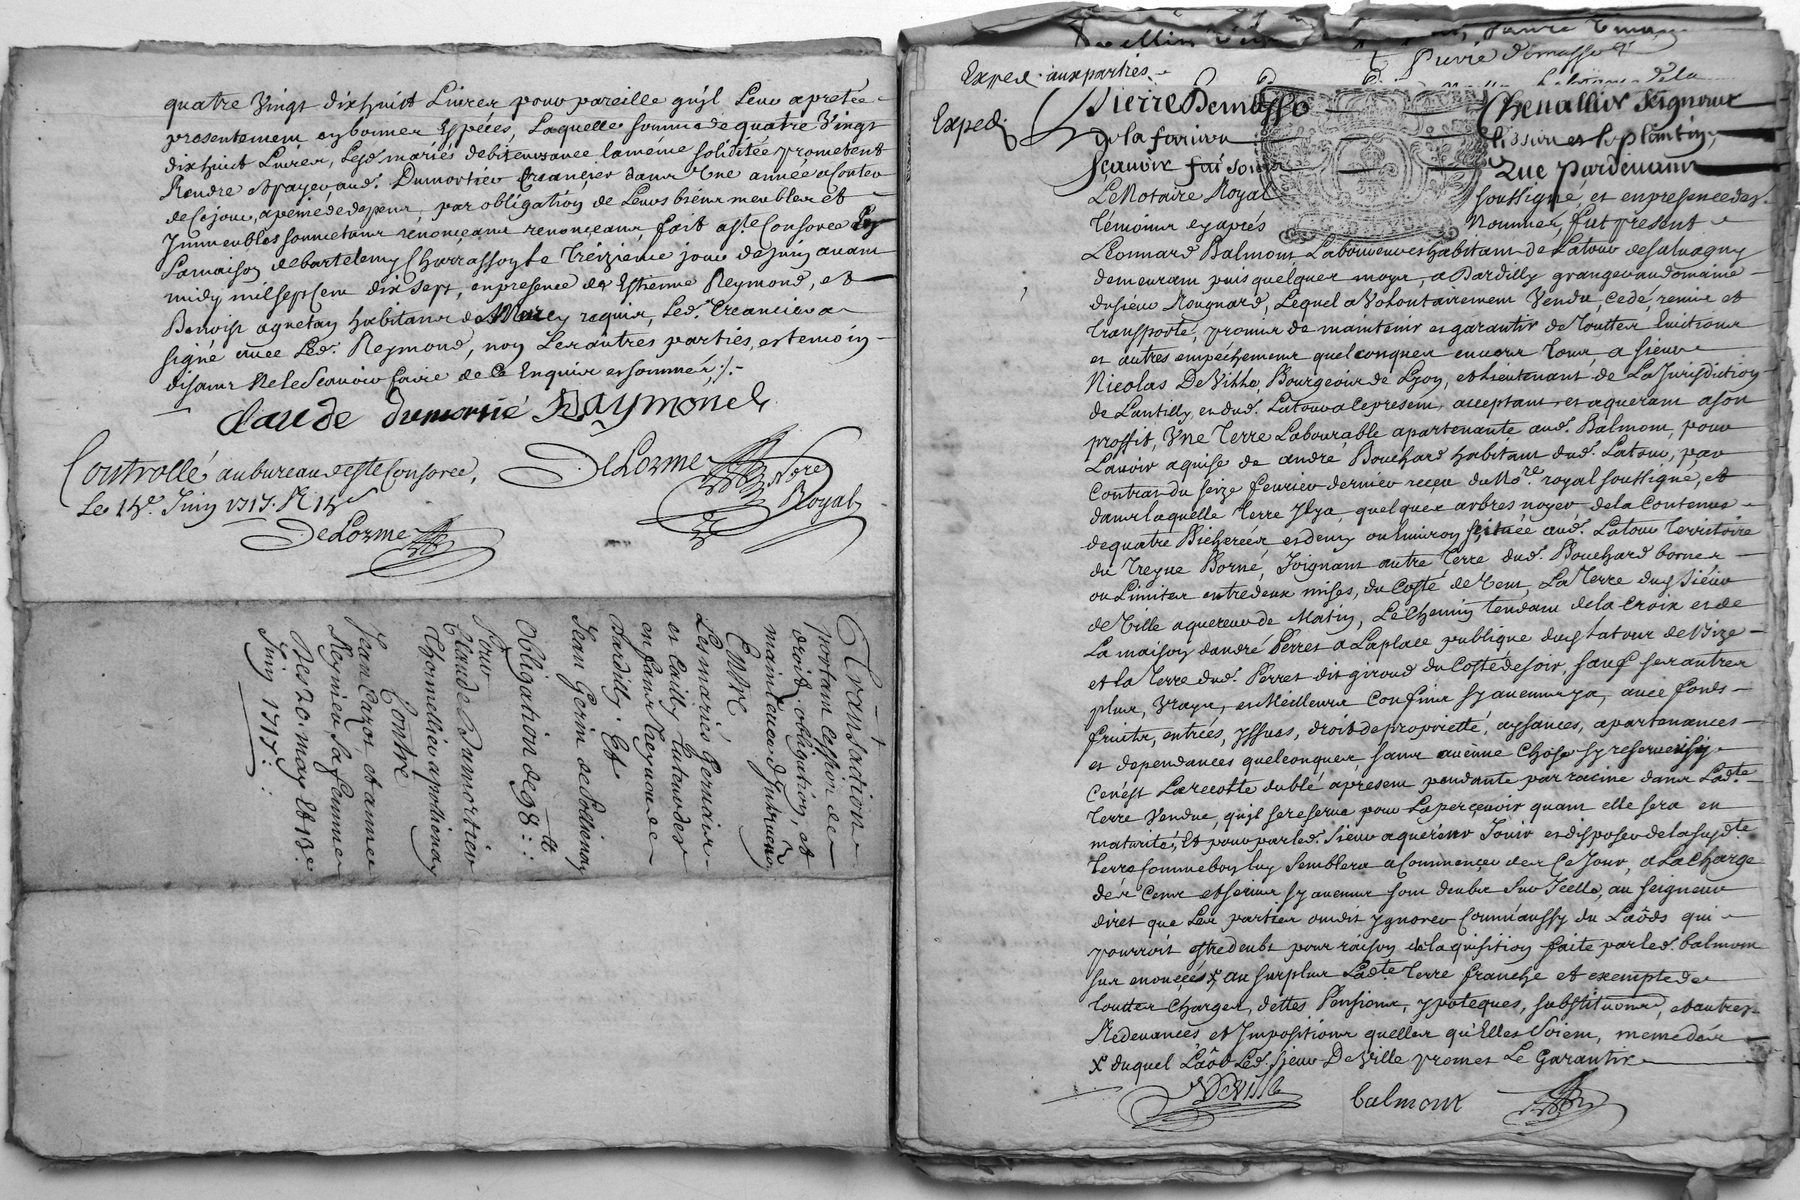 quatre Vingt dixhuict Livres pour pareille qu'jl Leur a pretée
presentement en bonnes Espéces, Laquelle somme de quatre Vingt
dixhuict Livres, Lesd. mariés debiteurs avec la même solidité promettent
Rendre et payer aud. Dumortier Creancier dans Une année a Conter
de Ce jour, a peine de depens, par obligation de Leurs biens meubles et
Immeubles soumettans renonçeans fait a Ste Consorce
La maison de bartelemy Charrassoy Le Treizieme jour de Juin avant
midy mil sept cent dix sept, en presence de Estienne Reymond, et
Benoist agnetan habitans de Marcy requis, Led. Creancier a
signé avec Led. Reymond, non Les autres parties, et temoin
disans Ne Le Sçavoir faire de Ce Enquis et sommés ./.
claude dumortié Raymond
DeLorme Nore Royal
Controllé au bureau de Ste Consorce,
Le 14e Juin 1717. R 14s
DeLorme
Transaction
portant Cession de
droit, obligation, et
main levée d'Jmmeubles
Entre
Les mariés Gervais
et Cailly Tuteur des
enfans Treynos de
dardilly. Et
Jean Gerin de Pollienay
Obligation de 98 tt
Pour
Claude Dumortier
Chormellieu a pollienay
Contre
Jean Cazot et anne
Reynier Sa femme
Des 20. may Et 13.e
Juin 1717:
Pierre demasso
Exped. aux parties
Exped.
Pierre Demasso Chevallier Seigneur
de la ferriere Lissieu et Le plantin,
Sçavoir fai sons Que Pardevant
Le Notaire Royal soussigné, et en presence des
Témoins cy aprés Nommés, fut present
Leonnard Balmont Laboureur habitant de Latour de salvagny
demeurant puis quelques moys, a Dardilly granger au domaine
du sieur Rougnard, Lequel a Volontairement Vendu, cedé, remis et
Transporté, promis de maintenir et garantir de Toutes Evictions
et autres empéchemens quelconques envers Tous, a sieur
Nicolas DeVille Bourgeois de Lyon, et Lieutenant de La Jurisdiction
de Lantilly, et dud. Latour a Ce present, acceptant et aquerant a son
proffit, Une Terre Labourable apartenante aud. Balmont, pour
L'avoir aquise de andre Bouchard habitant dud. Latour, par
Contrat du seize fevrier dernier reçeu du No.re royal soussigné, et
dans laquelle Terre Jl y a quelques arbres noyer, de la Contenue
de quatre Bicherées et demy ou Environ scituée aud. Latour Territoire
du Treyne Borné, Joignant autre Terre dud. Bouchard bornes
ou Limites entredeux mises, du Costé de Vent, La Terre dud. Sieur
de Ville aquereur de Matin, Le Chemin tendant de la Croix et de
La maison d'andré Perret a La place publique dud. Latour de Bize
et la Terre dud. Perret dit giroud du Costé de soir, sauf ses autres
plus, Vrays, et Meilleurs Confins sy aucuns y a, avec fonds
fruits, entrées, yssues, droit de proprieté, aysances, apartenances
et dependances quelconques sans aucune Chose s'y reserver si
Ce n'est La recolte du blé a present pendante par racine dans Lad.te
Terre Vendue, qu'jl se reserve pour La perçevoir quant elle sera en
maturité, Et pour par led. Sieur aquereur Jouir et disposer de la susd.te
Terre Comme bon luy Semblera a Commençer dez Ce Jour, a La Charge
des Cens et servis sy aucuns sont deubs Sur Jcelle, au seigneur
direct que Les parties ont dit ygnorer Comm'aussy du Laôds qui
pourroit estre deubt pour raison de la quisition faite par led. balmont
sus enoncées x au surplus Lad.te Terre franche et exempte de
Toutes Charges, dettes Pensions, ypoteques, substitutions, et autres
Redevances et Impositions quelles qu'Elles Soient, meme des
x duquel Laôd Led. Sieur DeVille promet Le Garantir
DeVille balmont